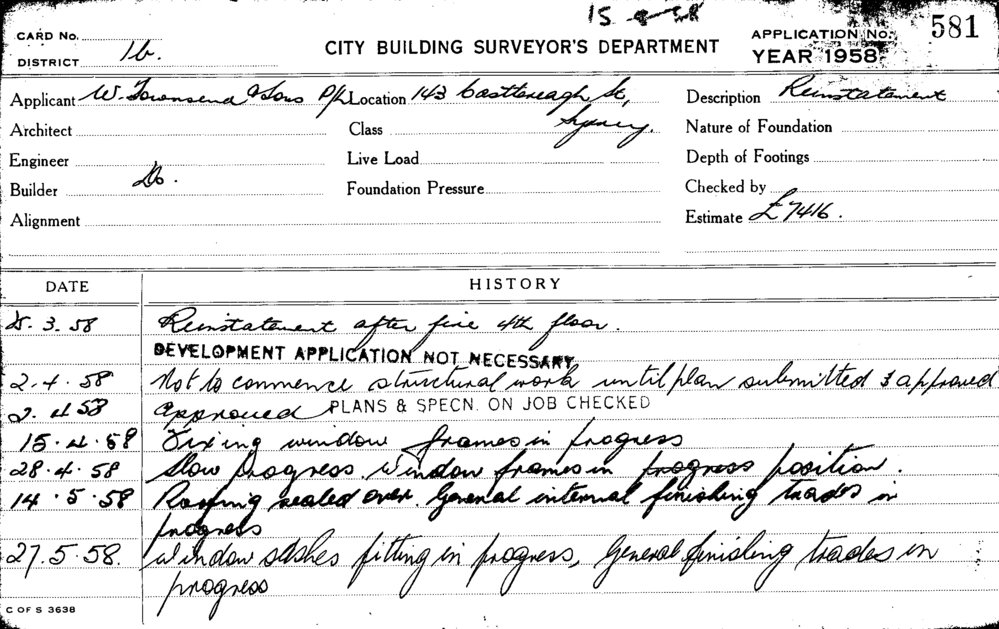 15-9-58
CARD No.
DISTRICT 1b.
CITY BUILDING SURVEYOR'S DEPARTMENT
APPLICATION No. 581
YEAR 1958
Applicant W. Townsend & Sons P/L Location 143 Castlereagh St, Sydney. Description Reinstatement
Architect Class Nature of Foundation
Engineer Live Load Depth of Footings
Builder Do. Foundation Pressure Checked by
Alignment Estimate £7416.
DATE HISTORY
3.58 Reinstatement after fire 4th floor.
DEVELOPMENT APPLICATION NOT NECESSARY
2.4.58 Not to commence structural work until plan submitted & approved
2.4.58 Approved PLANS & SPECN. ON JOB CHECKED
15.4.58 Fixing window frames in progress
28.4.58 Slow progress. Window frames in progress position.
14.5.58 Roofing sealed over. General internal finishing trades in
progress
27.5.58. Window sashes fitting in progress, General finishing trades in
progress
C OF S 3638